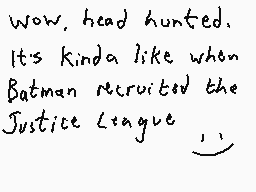 wow, head hunted.
It's kinda like when
Batman recruited the
Justice League